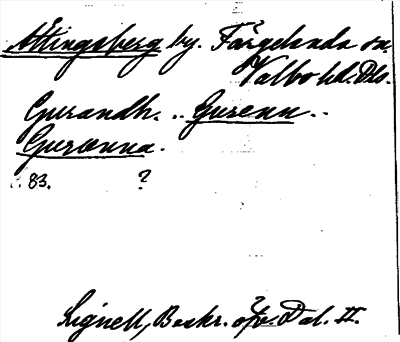 Attingsberg by. Färgelanda sn.
Valbo hd. Dls.
Gurandh. .. Gurenn ..
Gurænna.
s. 83. ?
Lignell, Beskr. öfv. Dal. II.